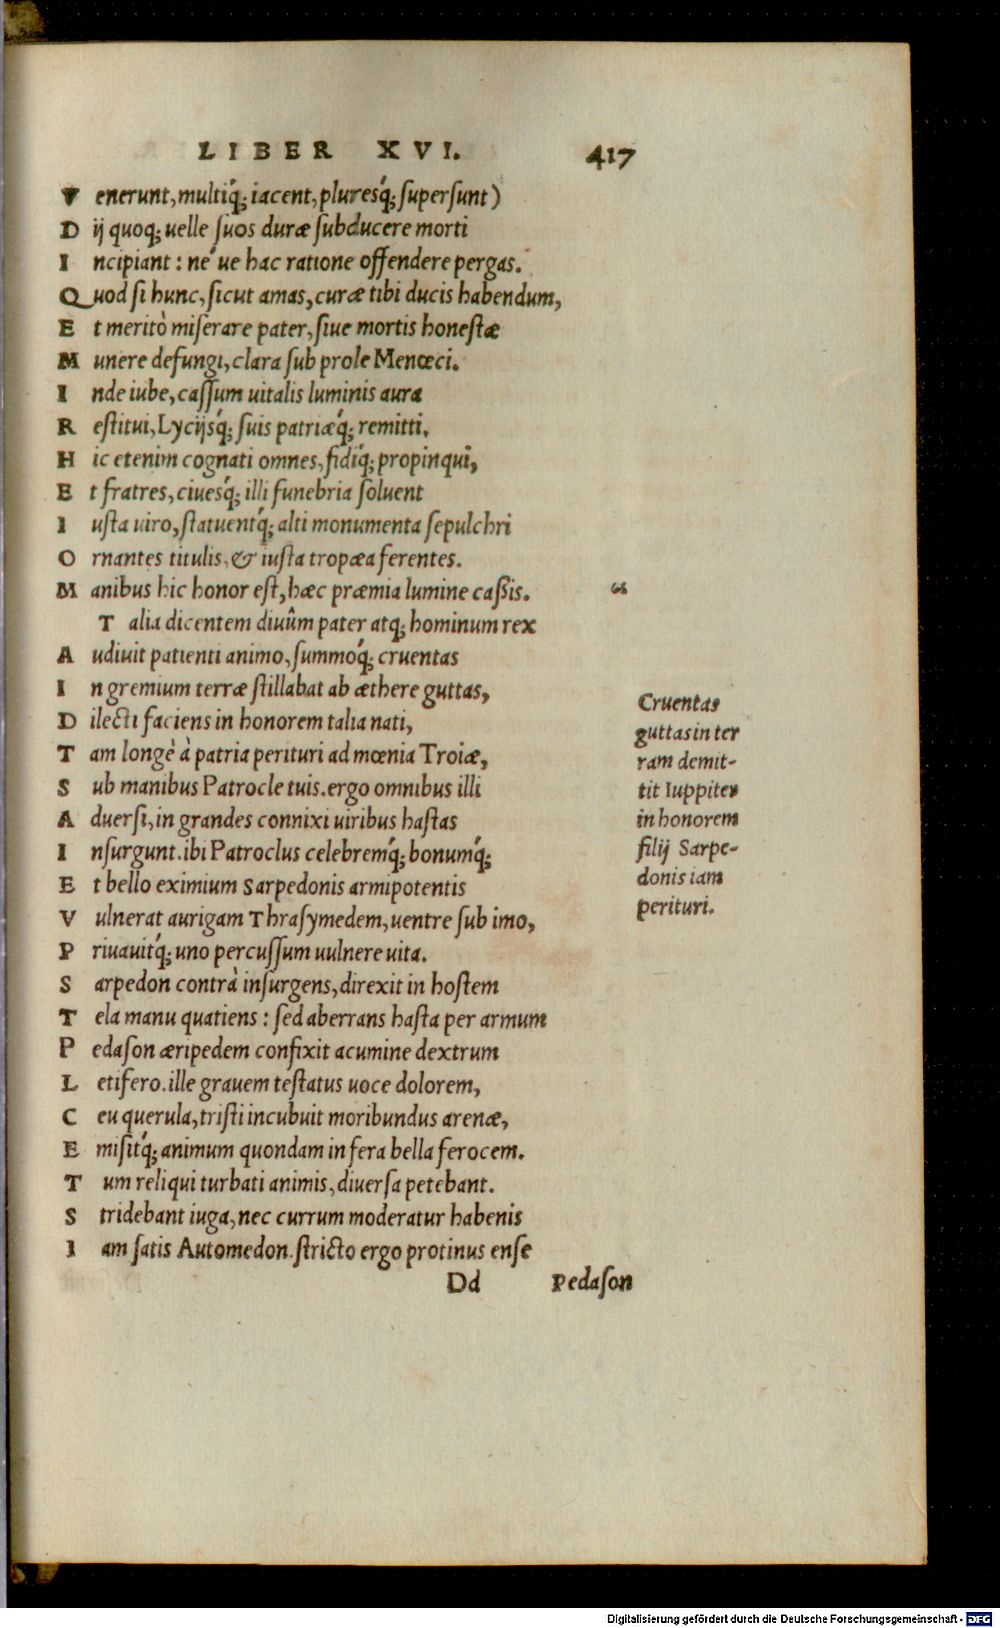 LIBER XVI. 417
Venerunt, multiq́; iacent, pluresq́; supersunt)
Dij quoq; uelle suos duræ subducere morti
Incipiant : ne´ue hac ratione offendere pergas.
Quod si hunc, sicut amas, curæ tibi ducis habendum,
Et meritò miserare pater, siue mortis honestæ
Munere defungi, clara sub prole Menœci.
Inde iube, cassum uitalis luminis aura
Restitui, Lycijsq́; suis patriæq́; remitti.
Hic etenim cognati omnes, fidiq́; propinqui,
Et fratres, ciuesq́; illi funebria soluent
Iusta uiro, statuentq́; alti monumenta sepulchri
Ornantes titulis, & iusta tropæa ferentes.
Manibus hic honor est, hæc præmia lumine caßis.
Talia dicentem diuûm pater atq; hominum rex
Audiuit patienti animo, summoq́; cruentas
In gremium terræ stillabat ab æthere guttas,
Dilecti faciens in honorem talia nati,
Tam longè à patria perituri ad mœnia Troiæ,
Sub manibus Patrocle tuis. ergo omnibus illi
Aduersi, in grandes connixi uiribus hastas
Insurgunt. ibi Patroclus celebremq́; bonumq́;
Et bello eximium Sarpedonis armipotentis
Vulnerat aurigam Thrasymedem, uentre sub imo,
Priuauitq́; uno percussum uulnere uita.
Sarpedon contrà insurgens, direxit in hostem
Tela manu quatiens : sed aberrans hasta per armum
Pedason æripedem confixit acumine dextrum
Letifero. ille grauem testatus uoce dolorem,
Ceu querula, tristi incubuit moribundus arenæ,
Emisitq́; animum quondam in fera bella ferocem.
Tum reliqui turbati animis, diuersa petebant.
Stridebant iuga, nec currum moderatur habenis
Iam satis Automedon. stricto ergo protinus ense
Dd Pedason
Cruentas
guttas in ter
ram demit-
tit Iuppiter
in honorem
filij Sarpe-
donis iam
perituri.
Digitalisierung gefördert durch die Deutsche Forschungsgemeinschaft - DFG